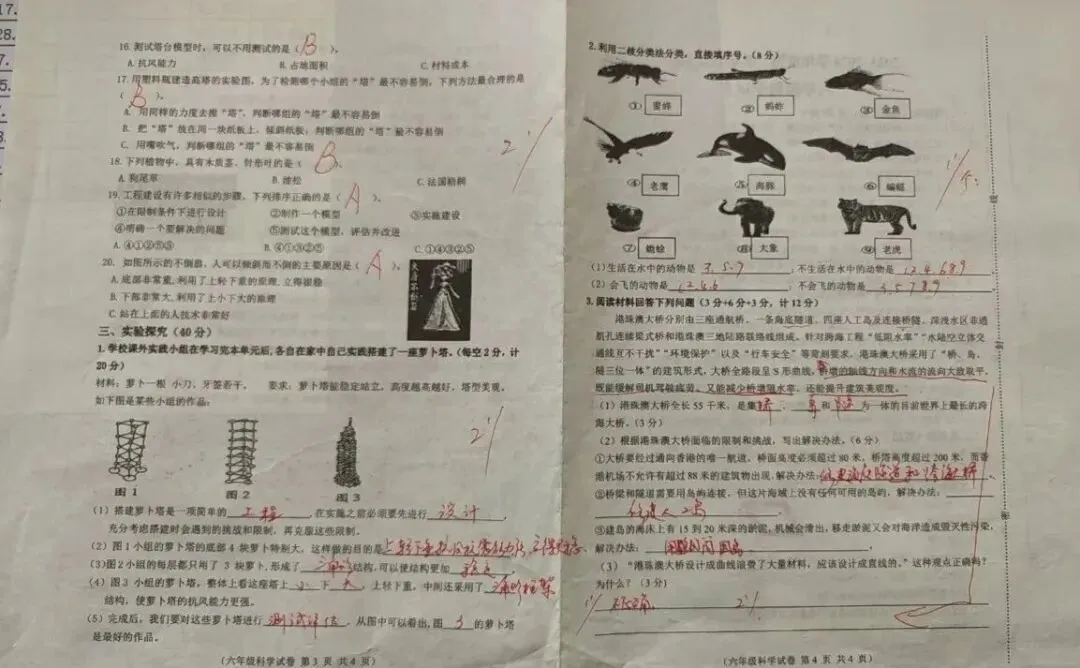 17.
28.
16. 测试塔台模型时，可以不用测试的是（ B ）。
A. 抗风能力 B. 占地面积 C. 材料成本
17. 用塑料瓶建造高塔的实验图，为了检测哪个小组的“塔”最不容易倒，下列方法最合理的是
（ B ）。
A. 用同样的力度去推“塔”，判断哪组的“塔”最不容易倒
B. 把“塔”放在同一块纸板上，倾斜纸板，判断哪组的“塔”最不容易倒
C. 用嘴吹气，判断哪组的“塔”最不容易倒
18. 下列植物中，具有木质茎、针形叶的是（ B
A. 狗尾草 B. 雪松 C. 法国梧桐
19. 工程建设有许多相似的步骤，下列排序正确的是（ A ）。
①在限制条件下进行设计 ②制作一个模型 ③实施建设
④明确一个要解决的问题 ⑤测试这个模型，评估并改进
A. ④①②⑤③ B. ④①③②⑤ C. ①④③②⑤
20. 如图所示的不倒翁，人可以倾斜而不倒的主要原因是（ A ）。
A. 底部非常重，利用了上轻下重的原理，立得很稳
B. 下部非常大，利用了上小下大的原理
C. 站在上面的人技术非常好
三、实验探究（40分）
1. 学校课外实践小组在学习完本单元后，各自在家中自己实践搭建了一座萝卜塔。（每空2分，计
20分）
材料：萝卜一根 小刀，牙签若干。 要求：萝卜塔能稳定站立，高度越高越好，塔型美观。
如下图是某些小组的作品：
图1 图2 图3
（1）搭建萝卜塔是一项简单的 工程 ，在实施之前必须要先进行 设计 ，
充分考虑搭建时会遇到的挑战和限制，再克服这些限制。
（2）图1小组的萝卜塔的底部4块萝卜特别大，这样做的目的是上轻下重
（3）图2小组的每层都只用了3块萝卜，形成了 三角形 结构，可以使结构更加 稳定 。
（4）图3小组的萝卜塔，整体上看这座塔上 小 下 大 ，上轻下重，中间还采用了
结构，使萝卜塔的抗风能力更强。
（5）完成后，我们要对这些萝卜塔进行 测试评估 ，从图中可以看出，图 3 的萝卜塔
是最好的作品。
（六年级科学试卷 第3页 共4页）
2. 利用二歧分类法分类，直接填序号。（8分）
① 蜜蜂 ② 蚂蚱 ③ 金鱼
④ 老鹰 ⑤ 海豚 ⑥ 蝙蝠
⑦ 蛐蛤 ⑧ 大象 ⑨ 老虎
（1）生活在水中的动物是 3.5.7 ；不生活在水中的动物是 1.2.4.6.8.9
（2）会飞的动物是 1.2.4.6 ；不会飞的动物是 3.5.7.8.9
3. 阅读材料回答下列问题（3分+6分+3分，计12分）
港珠澳大桥分别由三座通航桥、一条海底隧道、四座人工岛及连接桥隧、深浅水区非通
航孔连续梁式桥和港珠澳三地陆路联络线组成。针对跨海工程“低阻水率”“水陆空立体交
通线互不干扰”“环境保护”以及“行车安全”等苛刻要求，港珠澳大桥采用了“桥、岛、
隧三位一体”的建筑形式。大桥全路段呈S形曲线，桥墩的轴线方向和水流的流向大致取平，
既能缓解司机驾驶疲劳、又能减少桥墩阻水率，还能提升建筑美观度。
（1）港珠澳大桥全长55千米，是集 桥 、 岛 和 隧道 为一体的目前世界上最长的跨
海大桥。（3分）
（2）根据港珠澳大桥面临的限制和挑战，写出解决办法。（6分）
①大桥要经过通向香港的唯一航道，桥面高度必须超过80米，桥塔高度超过200米，而香
港机场不允许有超过88米的建筑物出现。解决办法：
②桥梁和隧道需要用岛屿连接，但这片海域上没有任何可用的岛屿，解决办法：
修建人工岛
③建岛的海床上有15到20米深的淤泥，机械会滑出，移走淤泥又会对海洋造成毁灭性污染，
解决办法：
（3）“港珠澳大桥设计成曲线浪费了大量材料，应该设计成直线的。”这种观点正确吗？
为什么？（3分）
不正确
（六年级科学试卷 第4页 共4页）